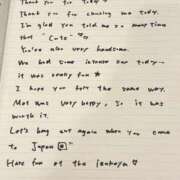 Thank you for today!
Thank you for choosing me today.
I'm glad you told me so many times
that "Cute" ♡
You're also very handsome.
We had some intense our today -
it was really fun ★
I hope you felt the same way.
Mot was very happy, so it was
worth it.
Let's hang out again when you come
to Japan
Have fun at the izakaya ♡